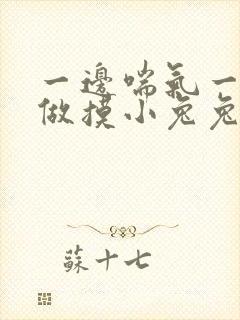 一邊喘氣一
做摸小兔兔
蘇十七